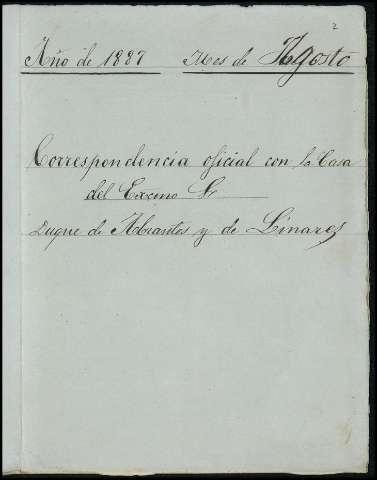 2
Año de 1887 Mes de Agosto
Correspondencia oficial con la Casa
del Excmo Sr
Duque de Abrantes y de Linares